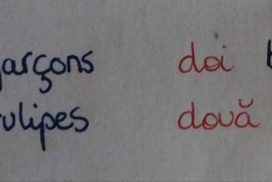 garçons doi
tulipes două